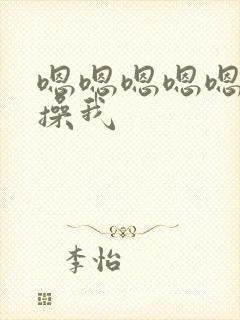 嗯嗯嗯嗯嗯
操我
李怡